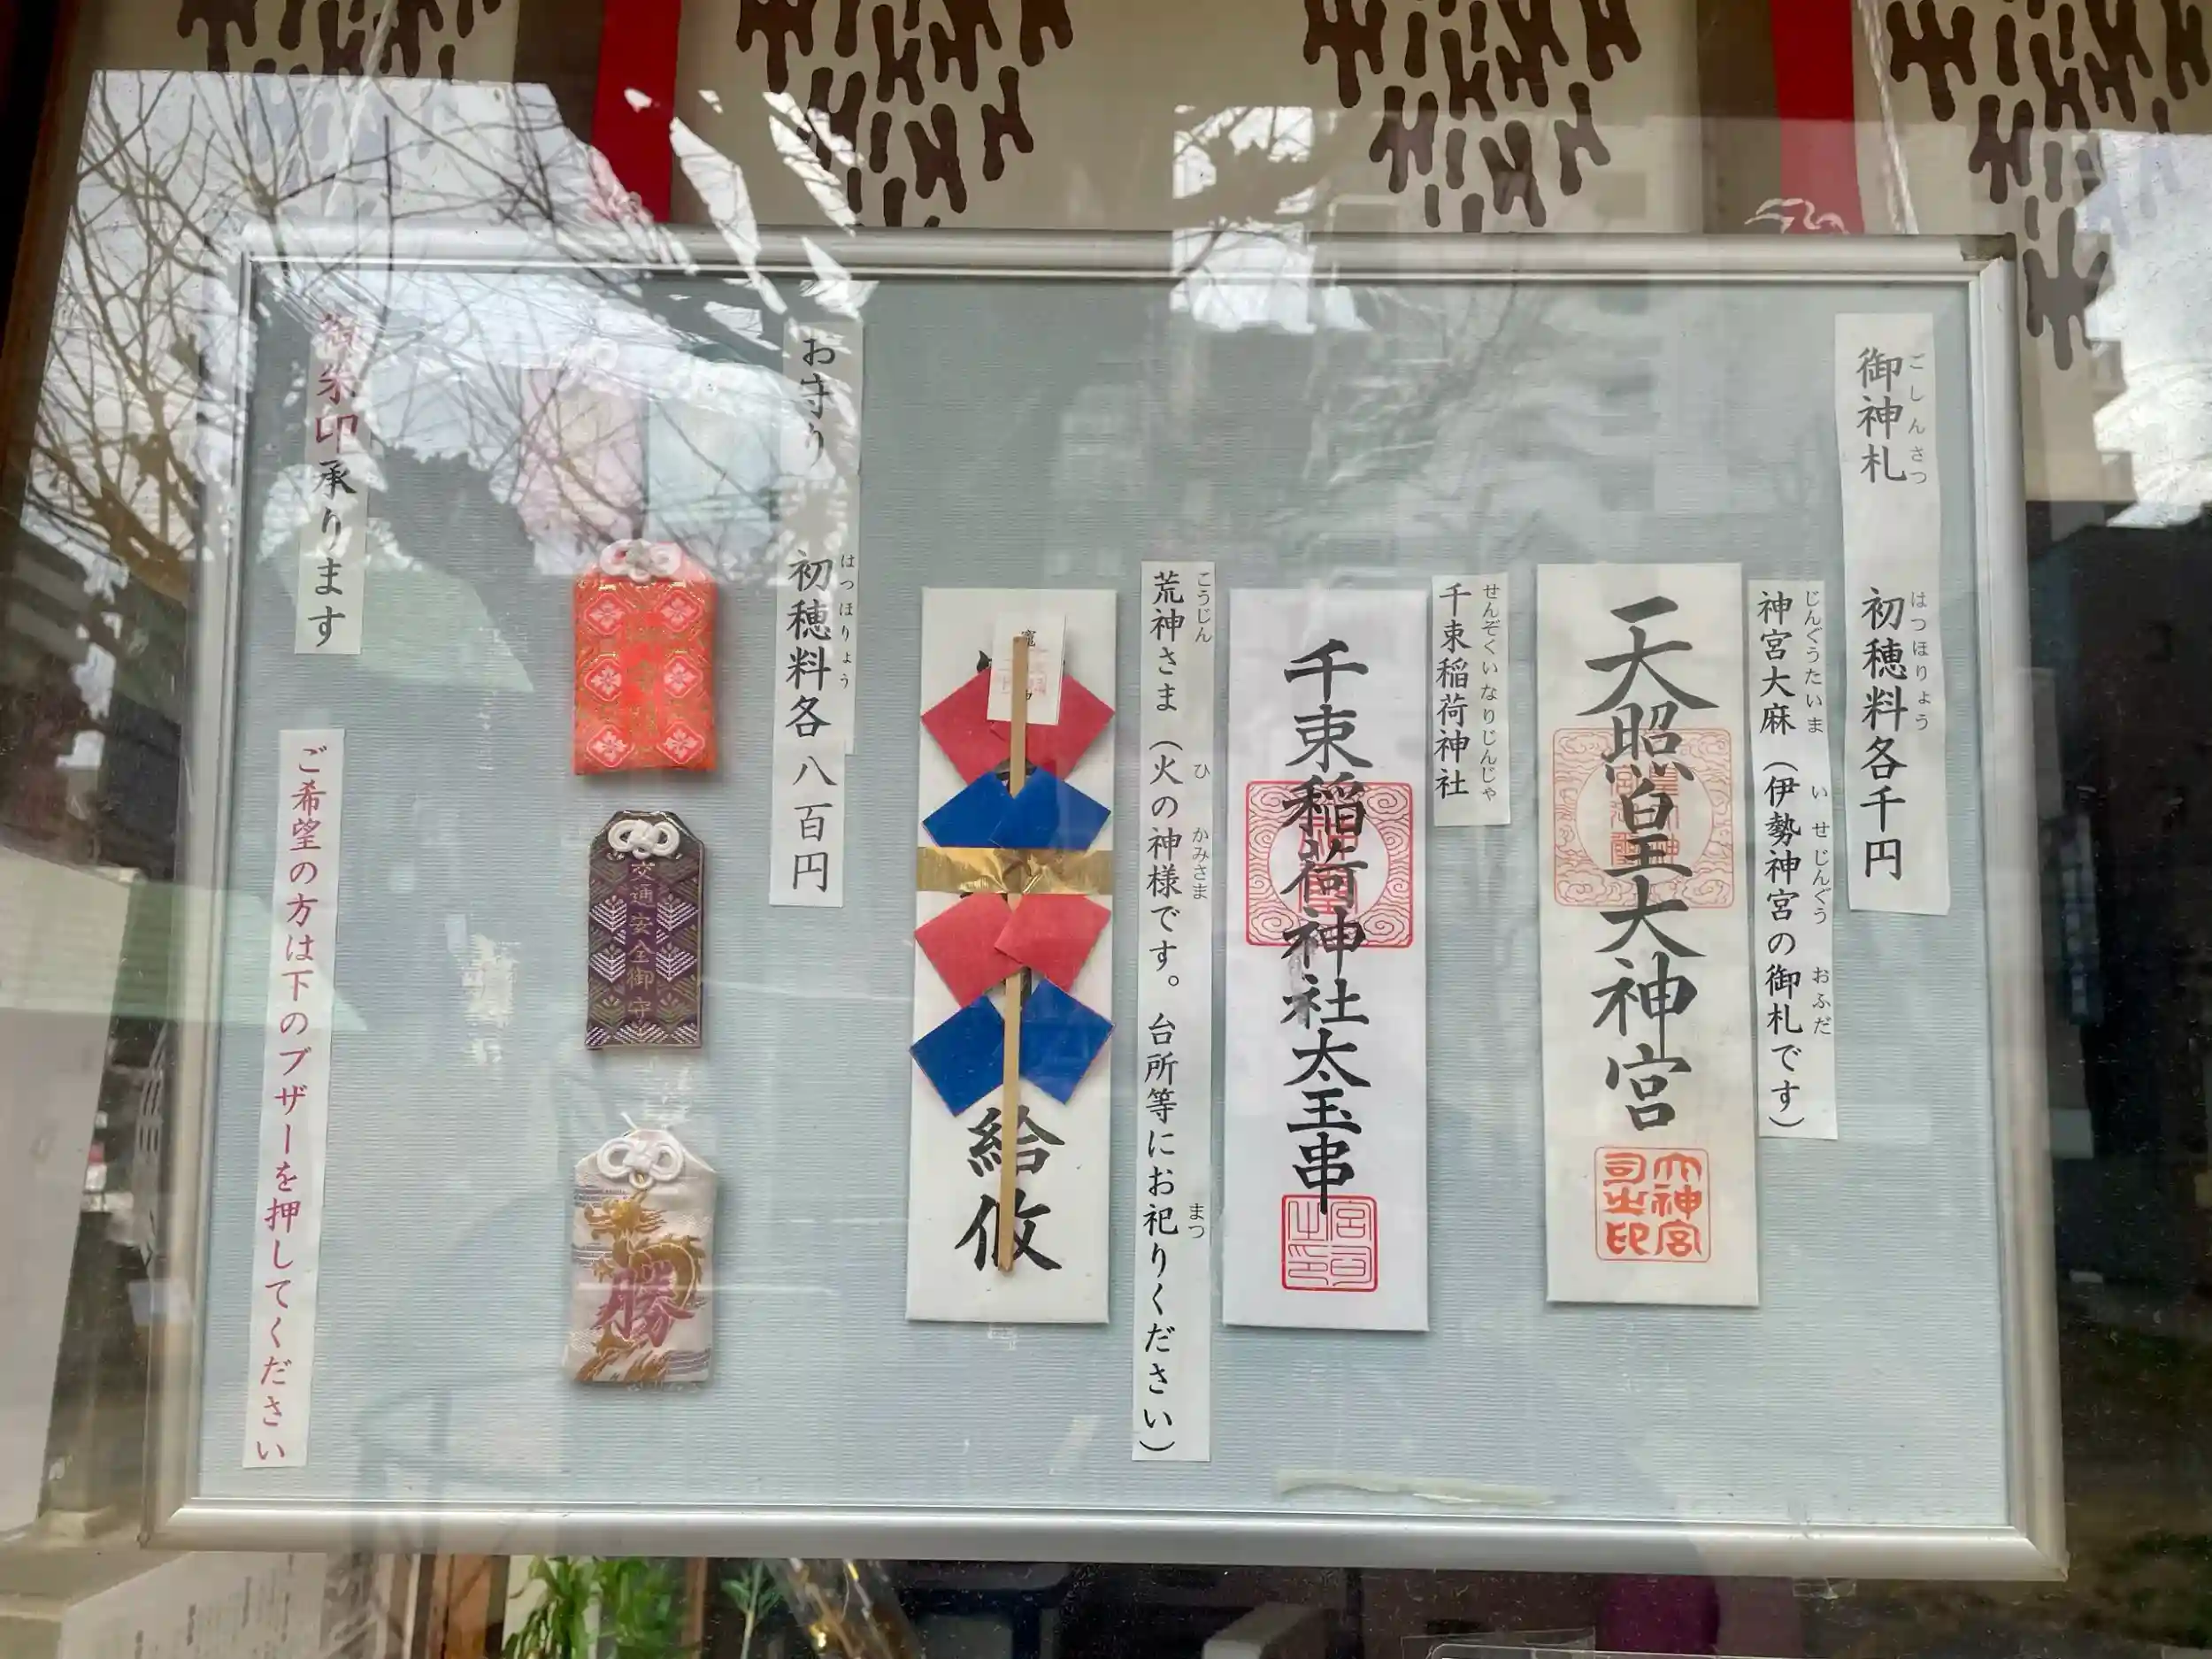 御神札 初穂料各千円
ごしんさつ はつほりょう
神宮大麻（伊勢神宮の御札です）
じんぐうたいま いせじんぐう おふだ
天照皇大神宮
大神宮司之印
千束稲荷神社
せんぞくいなりじんじゃ
千束稲荷神社太玉串
宮司之印
荒神さま（火の神様です。台所等にお祀りください）
こうじん ひ かみさま まつ
竈
給攸
お守り 初穂料各八百円
はつほりょう
交通安全御守
勝
御朱印承ります
ご希望の方は下のブザーを押してください